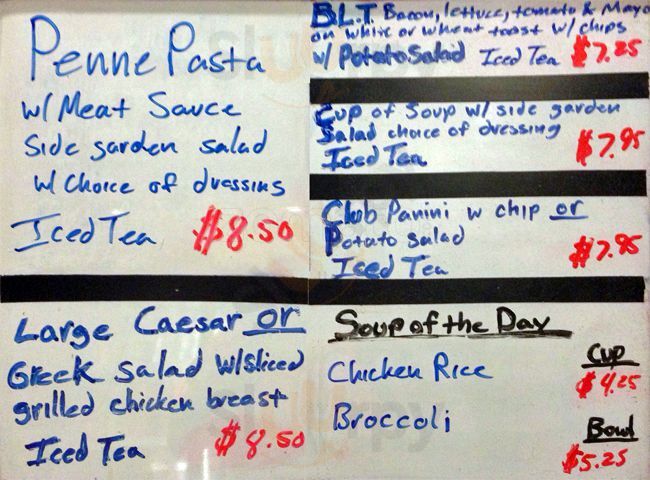 Penne Pasta
w/ Meat Sauce
Side garden salad
w/ Choice of dressings
Iced Tea $8.50
B.L.T. Bacon, lettuce, tomato & Mayo
on white or wheat toast w/ chips
w/ Potato Salad Iced Tea $7.25
Cup of Soup w/ side garden
Salad choice of dressing
Iced Tea $7.95
Club Panini w chip or
Potato Salad
Iced Tea $7.95
Large Caesar or
Greek Salad w/Sliced
grilled chicken breast
Iced Tea $8.50
Soup of the Day
Chicken Rice
Broccoli
Cup
$4.25
Bowl
$5.25